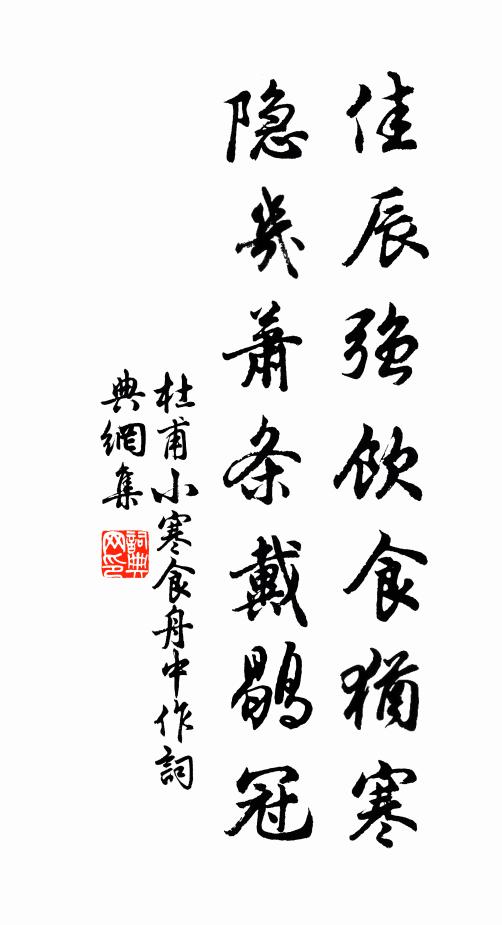 佳辰强飲食猶寒
隐幾蕭条戴鶡冠
杜甫小寒食舟中作詞
典網集
詞典
网印